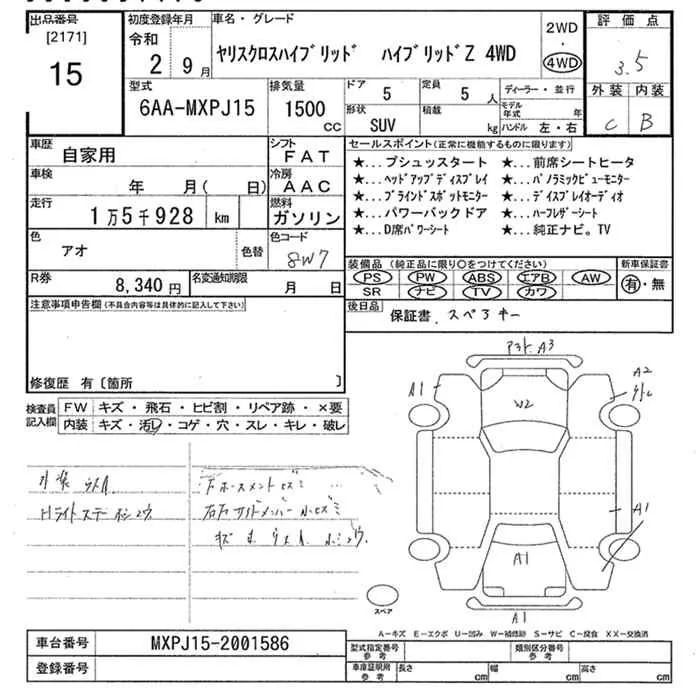 出品番号
[2171]
15
初度登録年月
令和
2 9月
車名・グレード
ヤリスクロスハイブリッド ハイブリッドZ 4WD
2WD
・
4WD
評価点
3.5
外装 内装
C B
型式
6AA-MXPJ15
排気量
1500
CC
ドア
5
定員
5 人
形状
SUV
積載
kg
ディーラー・並行
モデル年式 年
ハンドル 左・右
車歴
自家用
シフト
FAT
車検
年 月( 日)
冷房
AAC
走行
1万5千928 km
燃料
ガソリン
色
アオ
色替
色コード
8W7
R券
8,340円
名変通知期限
月 日
セールスポイント(正常に機能するものに限ります)
★...プシュッスタート ★...前席シートヒータ
★...ヘッドアップディスプレイ ★...パノラミックビューモニター
★...ブラインドスポットモニター ★...ディスプレイオーディオ
★...パワーバックドア ★...ハーフレザーシート
★...D席パワーシート ★...純正ナビ。TV
装備品(純正品に限り○をつけてください)
PS PW ABS エアB AW
SR ナビ TV カワ
新車保証書
有・無
後日品
保証書、スペアキー
注意事項申告欄(不具合内容等は具体的に記入して下さい)
修復歴 有〔箇所 〕
検査員記入欄
FW キズ・飛石・ヒビ割・リペア跡・×要
内装 キズ・汚レ・コゲ・穴・スレ・キレ・破レ
外装
Hライトステー
A3
A1
W2
A2
A1
A1
A1
スペア
A-キズ E-エクボ U-凹み W-補修跡 S-サビ C-腐食 XX-交換済
車台番号
MXPJ15-2001586
登録番号
型式指定番号参考
類別区分番号参考
車庫証明用参考
長さ cm
幅 cm
高さ cm